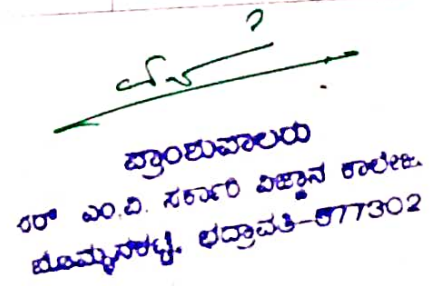 ಪ್ರಾಂಶುಪಾಲರು
ಸರ್ ಎಂ.ವಿ. ಸರ್ಕಾರಿ ವಿಜ್ಞಾನ ಕಾಲೇಜು.
ಬೊಮ್ಮನಕಟ್ಟೆ, ಭದ್ರಾವತಿ-577302